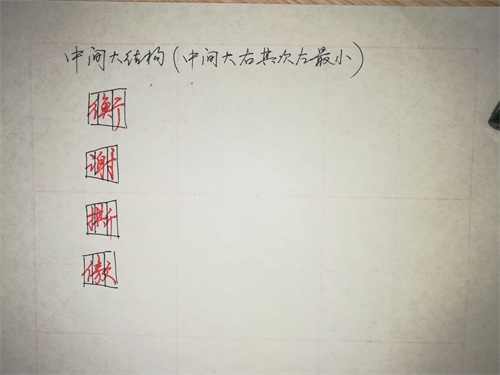 中间大结构(中间大右其次左最小)
衡
谢
撕
傲